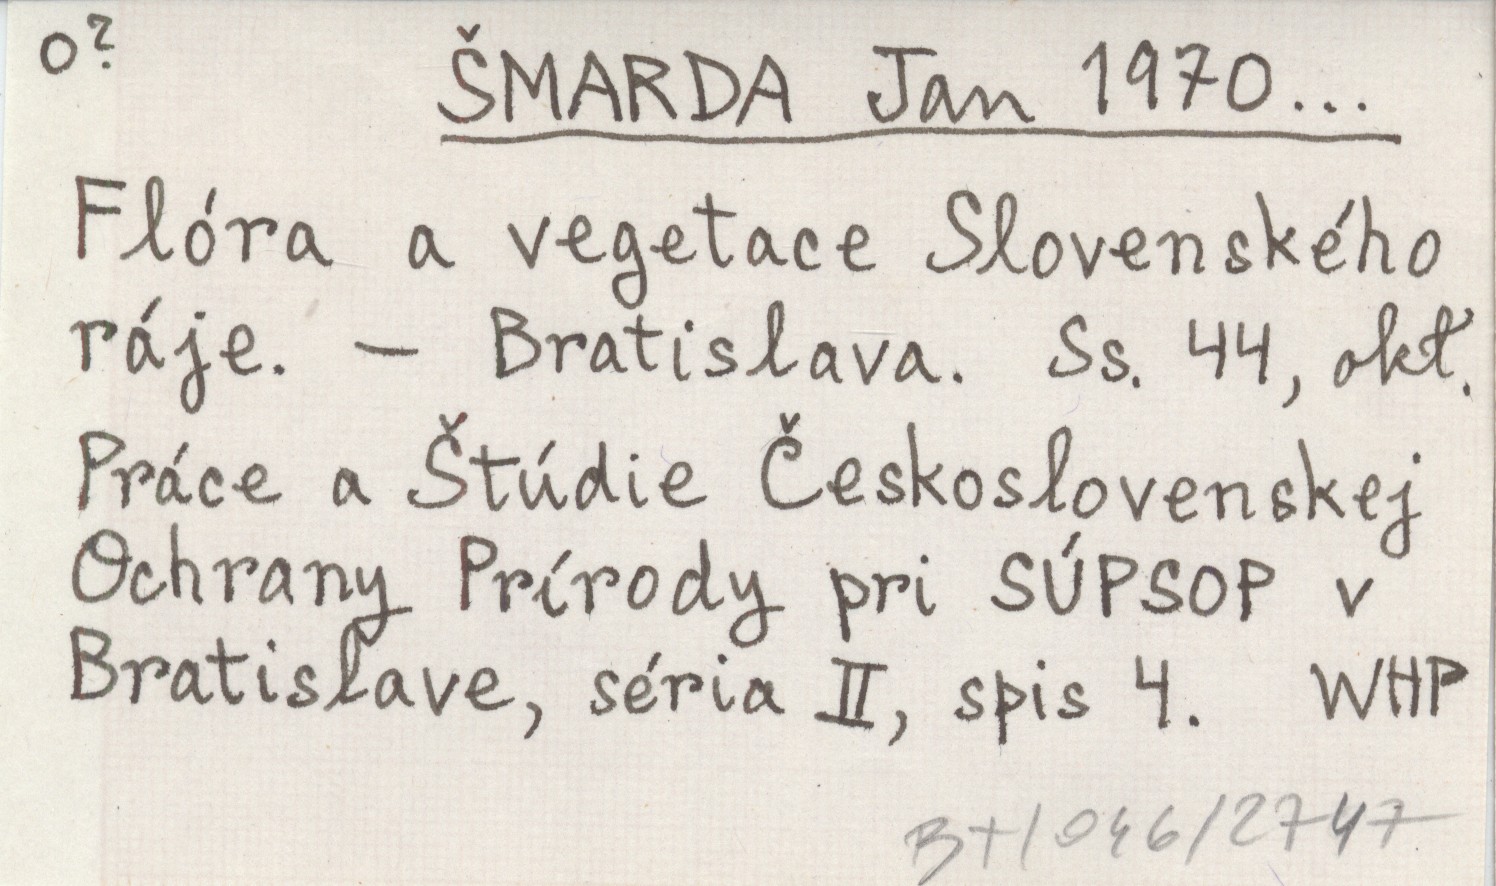 o?
ŠMARDA Jan 1970...
Flóra a vegetace Slovenského
ráje. — Bratislava. Ss. 44, okt.
Práce a Štúdie Československej
Ochrany Prírody pri SÚPSOP v
Bratislave, séria II, spis 4. WHP
B+/046/2747